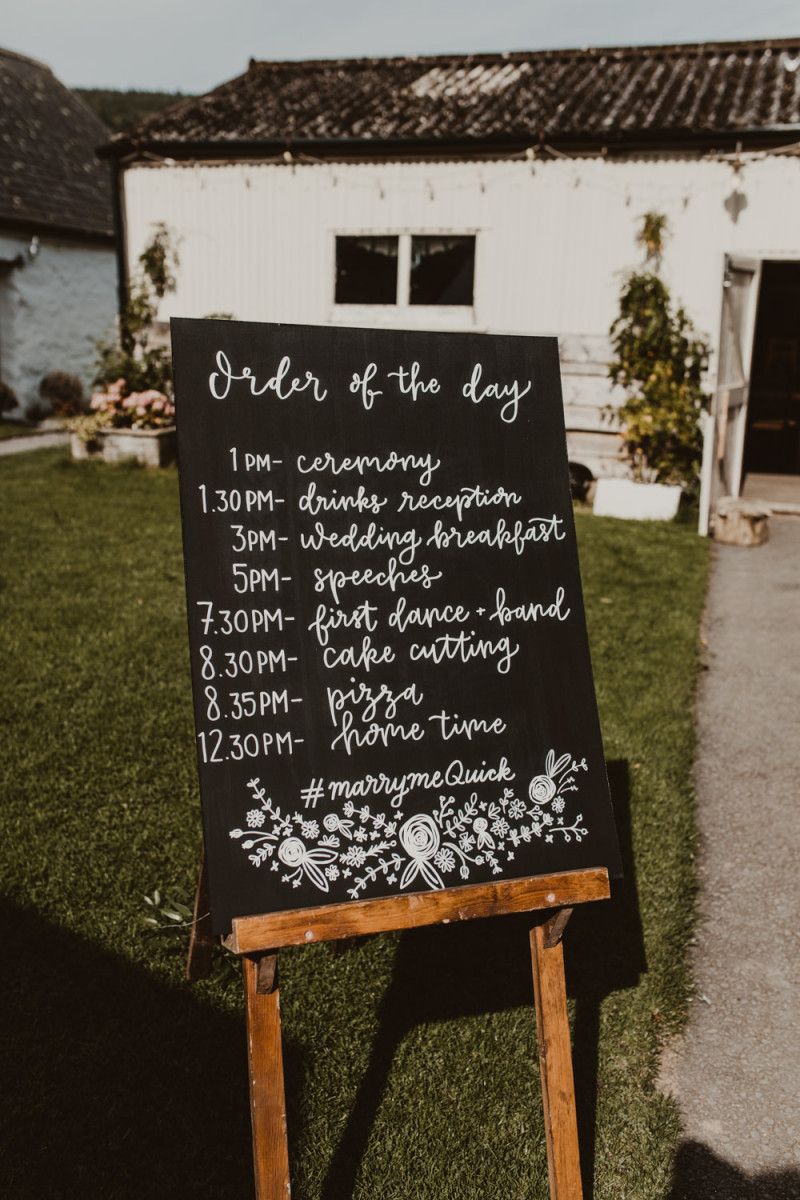 Order of the day
1PM- ceremony
1.30PM- drinks reception
3PM- wedding breakfast
5PM- speeches
7.30PM- first dance + band
8.30PM- cake cutting
8.35PM- pizza
12.30PM- home time
#marrymeQuick